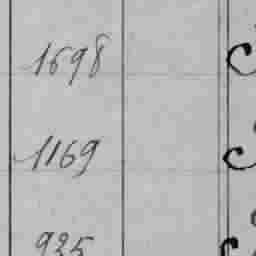 1698
1169
935